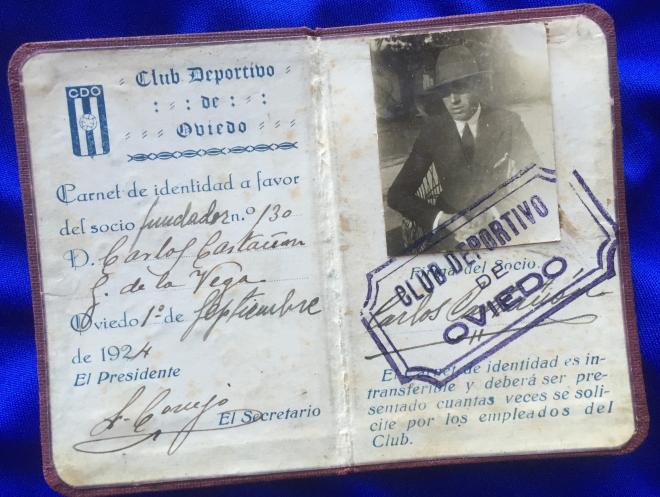 CDO
Club Deportivo
de
Oviedo
Carnet de identidad a favor
del socio fundador n.º 130
D. Carlos Castañon
G. de la Vega
Oviedo 1º de Septiembre
de 1924
El Presidente
El Secretario
CLUB DEPORTIVO
DE
OVIEDO
Firma del Socio
Carlos Castañón
El carnet de identidad es in-
transferible y deberá ser pre-
sentado cuantas veces se soli-
cite por los empleados del
Club.